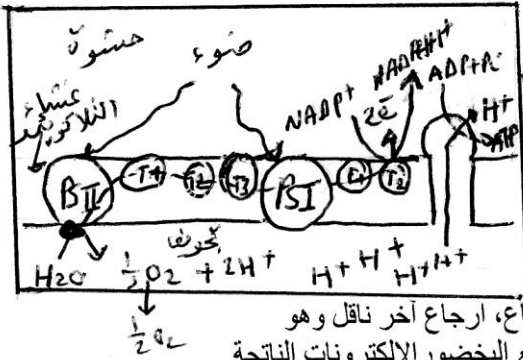 حشوة
ضوء
غشاء
NADP+
NADPHH+
ADP+Pi
2e
H+
ATP
PSII
T1
T2
T3
PSI
T'1
T'2
تجويف
H2O
1/2 O2 + 2H+
H+ H+
H+ H+
1/2 O2
اع، ارجاع آخر ناقل وهو
اليخضور الالكترونات الناتجة